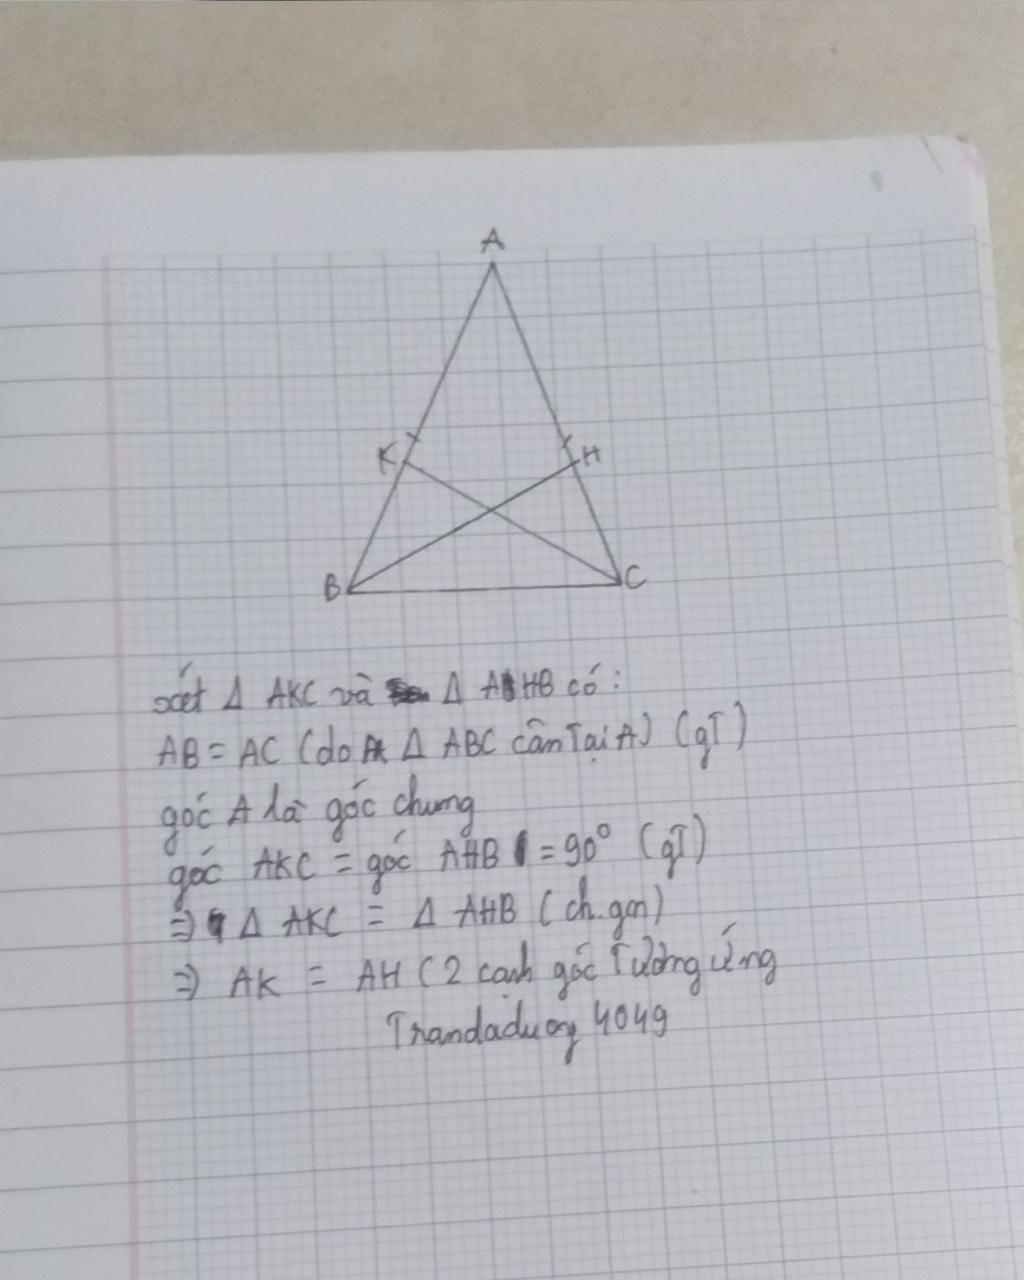 A
K
H
B
C
xét Δ AKC và Δ AHB có:
AB = AC (do Δ ABC cân Tại A) (gT)
góc A là góc chung
góc AKC = góc AHB = 90° (gT)
=> Δ AKC = Δ AHB (ch.gn)
=> AK = AH (2 cạnh góc Tương ứng
Trandaduong 4049